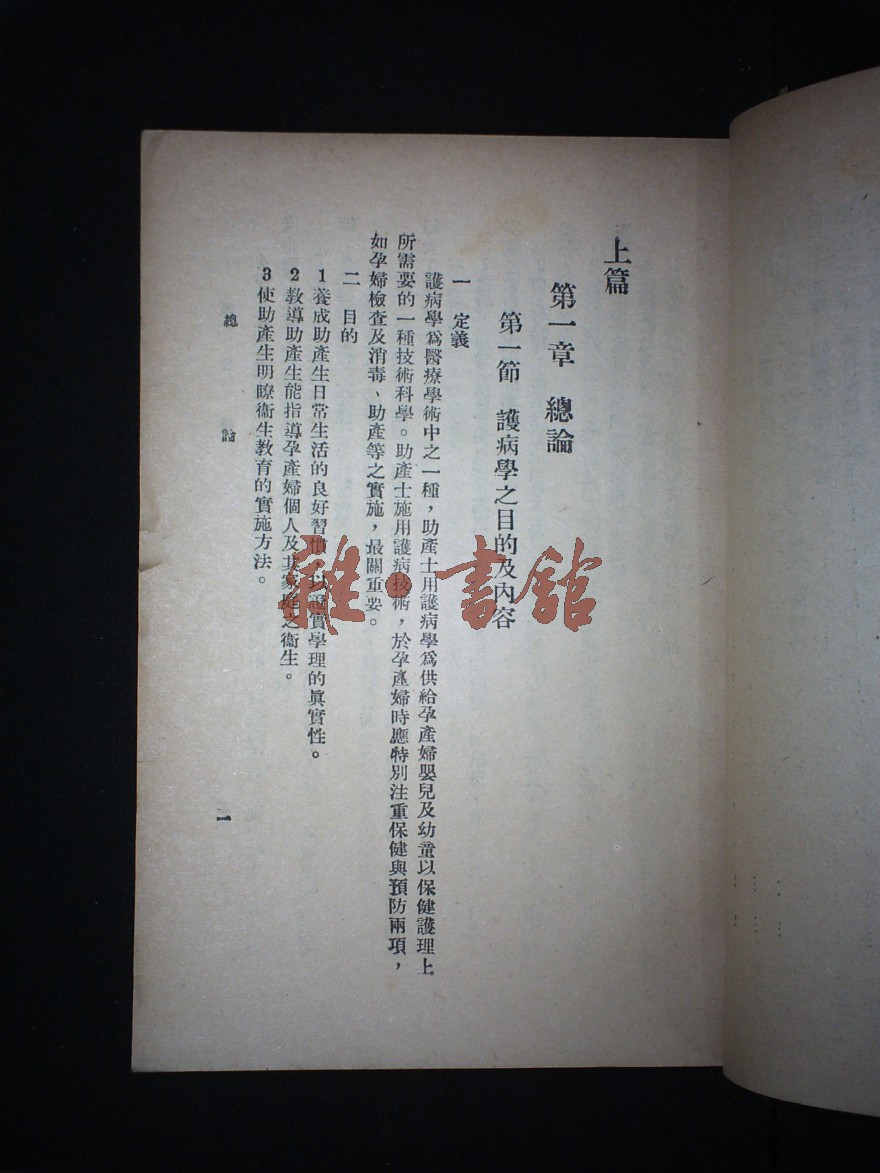 上篇
第一章 總論
第一節 護病學之目的及內容
一 定義
護病學爲醫療學術中之一種，助產士用護病學爲供給孕產婦嬰兒及幼童以保健護理上
所需要的一種技術科學。助產士施用護病技術，於孕產婦時應特別注重保健與預防兩項，
如孕婦檢查及消毒、助產等之實施，最關重要。
二 目的
1 養成助產生日常生活的良好習慣，以證實學理的眞實性。
2 敎導助產生能指導孕產婦個人及其家庭之衞生。
3 使助產生明瞭衞生敎育的實施方法。
總 論
一
雅·書館